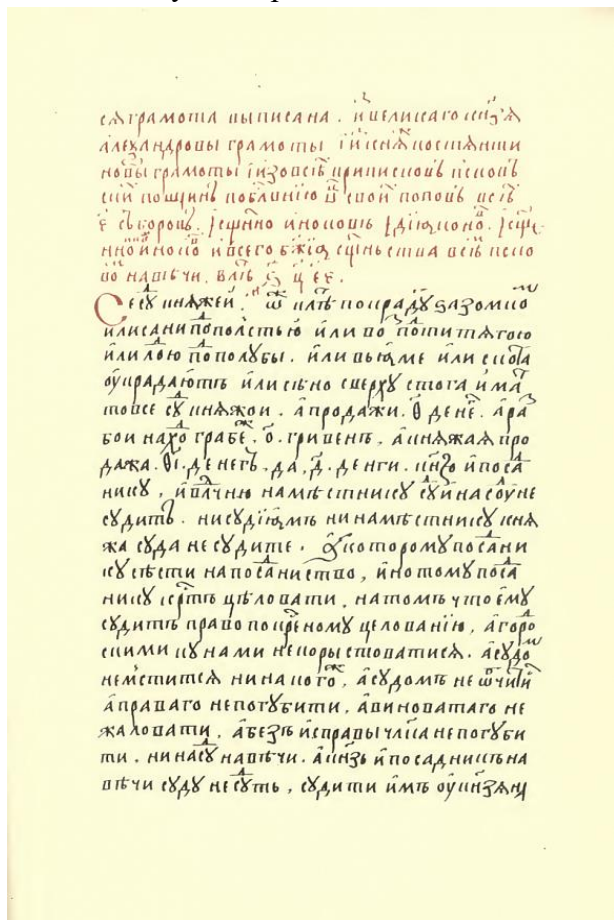 сꙗ грамота выписана. и҆з великаго кнꙁꙗ
алеѯандровы грамоты и҆ из кнꙗж костꙗнтин
новы грамоты и҆ изо всѣх приписков пъсков
ских пошлинъ по блг҃внию ѿц свои҆х попов всѣх
е҃ съборовъ. и сщ҃нноиноковъ и диꙗконов. и сщ҃н
ников и всего бж҃иꙗ сщ҃ньства всѣм пско
вом на вѣчи. в лѣт
Се суд кнꙗжей. ѡ҆ж клѣт покрадут за замком
или сани под полстью или воз под титѧгою
или лодью под полубы. или въ ꙗме или скота
оу҆крадають или сѣно сверху стога имат
то все суд кнꙗжои. а продажи. ѳ҃ денег. а раз
бои наход грабеж. о҃. гривенъ. а кнꙗжаꙗ про
дажа. ѳ҃і. денегъ. да. д҃. денги. кнз҃ю и поса
нику. и влд҃чню намѣстнику суд и на суд не
судить. ни судиꙗмъ ни намѣстнику кнꙗ
жа суда не судите. а которому посадни
ку сѣсти на посадниство, ино тому посад
нику крт҃ъ цѣловати. на томъ что ему
судить право по крс҃ному целованию. а горо
скими кунами не корыстоватисꙗ. а судом
не мститисꙗ ни на ког ж. а судомъ не ѿчитис
а праваго не погубити. а виноватаго не
жаловати. а безъ исправы члв҃ка не погуби
ти. ни на суду на вѣчи. а кнз҃ь и посадникъ на
вѣчи суду не судѧть. судити имъ оу кнз҃ѧ на